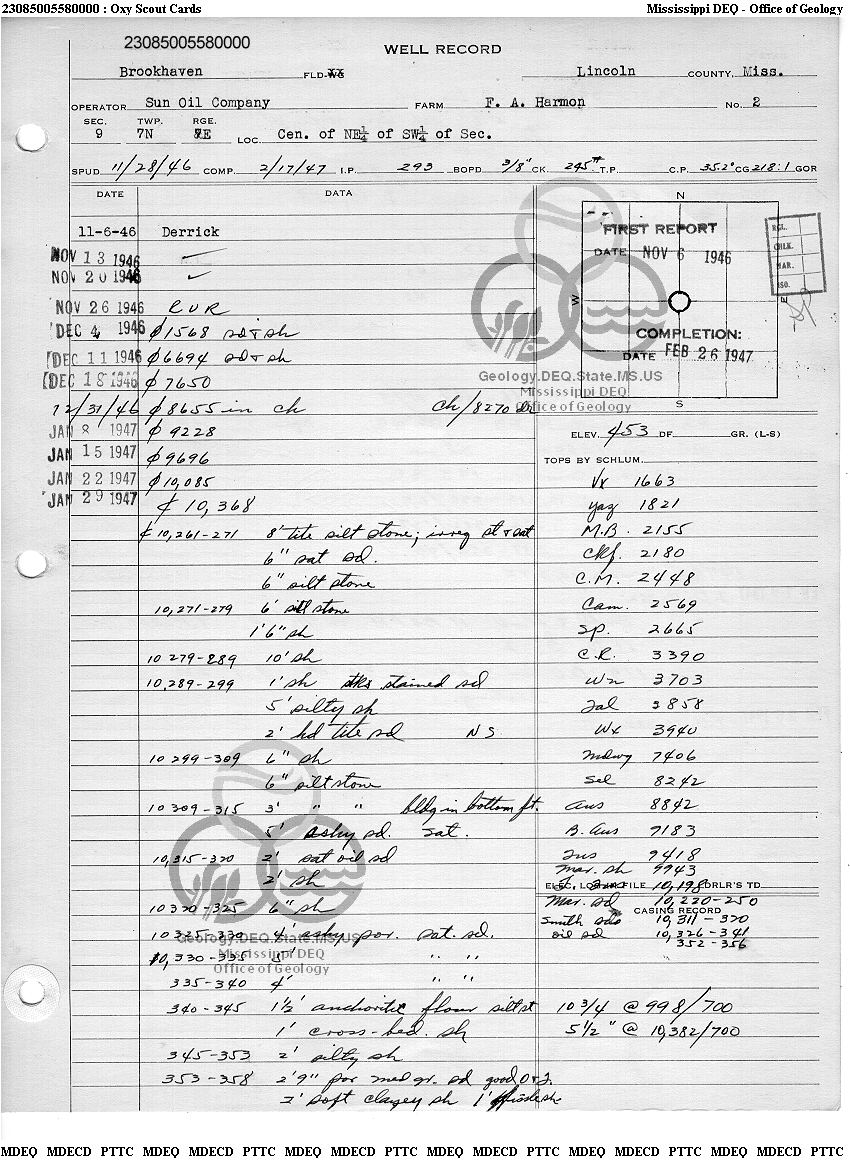 23085005580000 : Oxy Scout Cards Mississippi DEQ - Office of Geology
23085005580000
WELL RECORD
Brookhaven FLD-XX Lincoln COUNTY, Miss.
OPERATOR Sun Oil Company FARM F. A. Harmon No. 2
SEC. TWP. RGE.
9 7N 7E LOC. Cen. of NE¼ of SW¼ of Sec.
SPUD 11/28/46 COMP. 2/17/47 I.P. 293 BOPD 3/8" CK. 245# T.P. C.P. 35.2° CG 218:1 GOR
DATE DATA
11-6-46 Derrick
NOV 13 1946
NOV 20 1946
NOV 26 1946 RUR
DEC 4 1946 ¢ 1568 sd & sh
DEC 11 1946 ¢ 6694 sd & sh
DEC 18 1946 ¢ 7650
12/31/46 ¢ 8655 in ch Ch/8270
JAN 8 1947 ¢ 9228
JAN 15 1947 ¢ 9696
JAN 22 1947 ¢ 10,085
JAN 29 1947 ¢ 10,368
¢ 10,261-271 8' tite silt stone; irreg st & sat
6" sat sd.
6" silt stone
10,271-279 6' silt stone
1'6" sh
10 279-289 10' sh
10,289-299 1' sh stks stained sd
5' silty sh
2' hd tite sd NS
10 299-309 6" sh
6" silt stone
10 309-315 3' " " bldg in bottom ft.
5' ashy sd. sat.
10,315-320 2' sat oil sd
2' sh
10 320-325 6" sh
10 325-330 4' ashy por. sat. sd.
10,330-335 5' " "
335-340 4' " "
340-345 1½' anchoritic flour silt st
1' cross-bed. sh
345-353 2' silty sh
353-358 2'9" por med gr. sd good O & T.
2' soft clayey sh 1' fissle sh
N
W
E
S
FIRST REPORT
DATE NOV 6 1946
COMPLETION:
DATE FEB 26 1947
RGL.
CHLK.
MAR.
Geology.DEQ.State.MS.US
Mississippi DEQ
Office of Geology
ELEV. 453 DF. GR. (L-S)
TOPS BY SCHLUM.
Vx 1663
Yaz 1821
M.B. 2155
Ckf. 2180
C.M. 2448
Cam. 2569
Sp. 2665
C.R. 3390
Wn 3703
Tal 3858
Wx 3940
Mdwy 7406
Sel 8242
Aus 8842
B. Aus 9183
Tus 9418
Mar. sh 9943
ELEC. LOG IN FILE 10,198 DRLR'S TD
Mar. sd 10,220-250
CASING RECORD
Smith sds 10,311-320
oil sd 10,326-341
352-356
10 3/4 @ 998/700
5 1/2" @ 10,382/700
Geology.DEQ.State.MS.US
Mississippi DEQ
Office of Geology
MDEQ MDECD PTTC MDEQ MDECD PTTC MDEQ MDECD PTTC MDEQ MDECD PTTC MDEQ MDECD PTTC MDEQ MDECD PTTC MDEQ